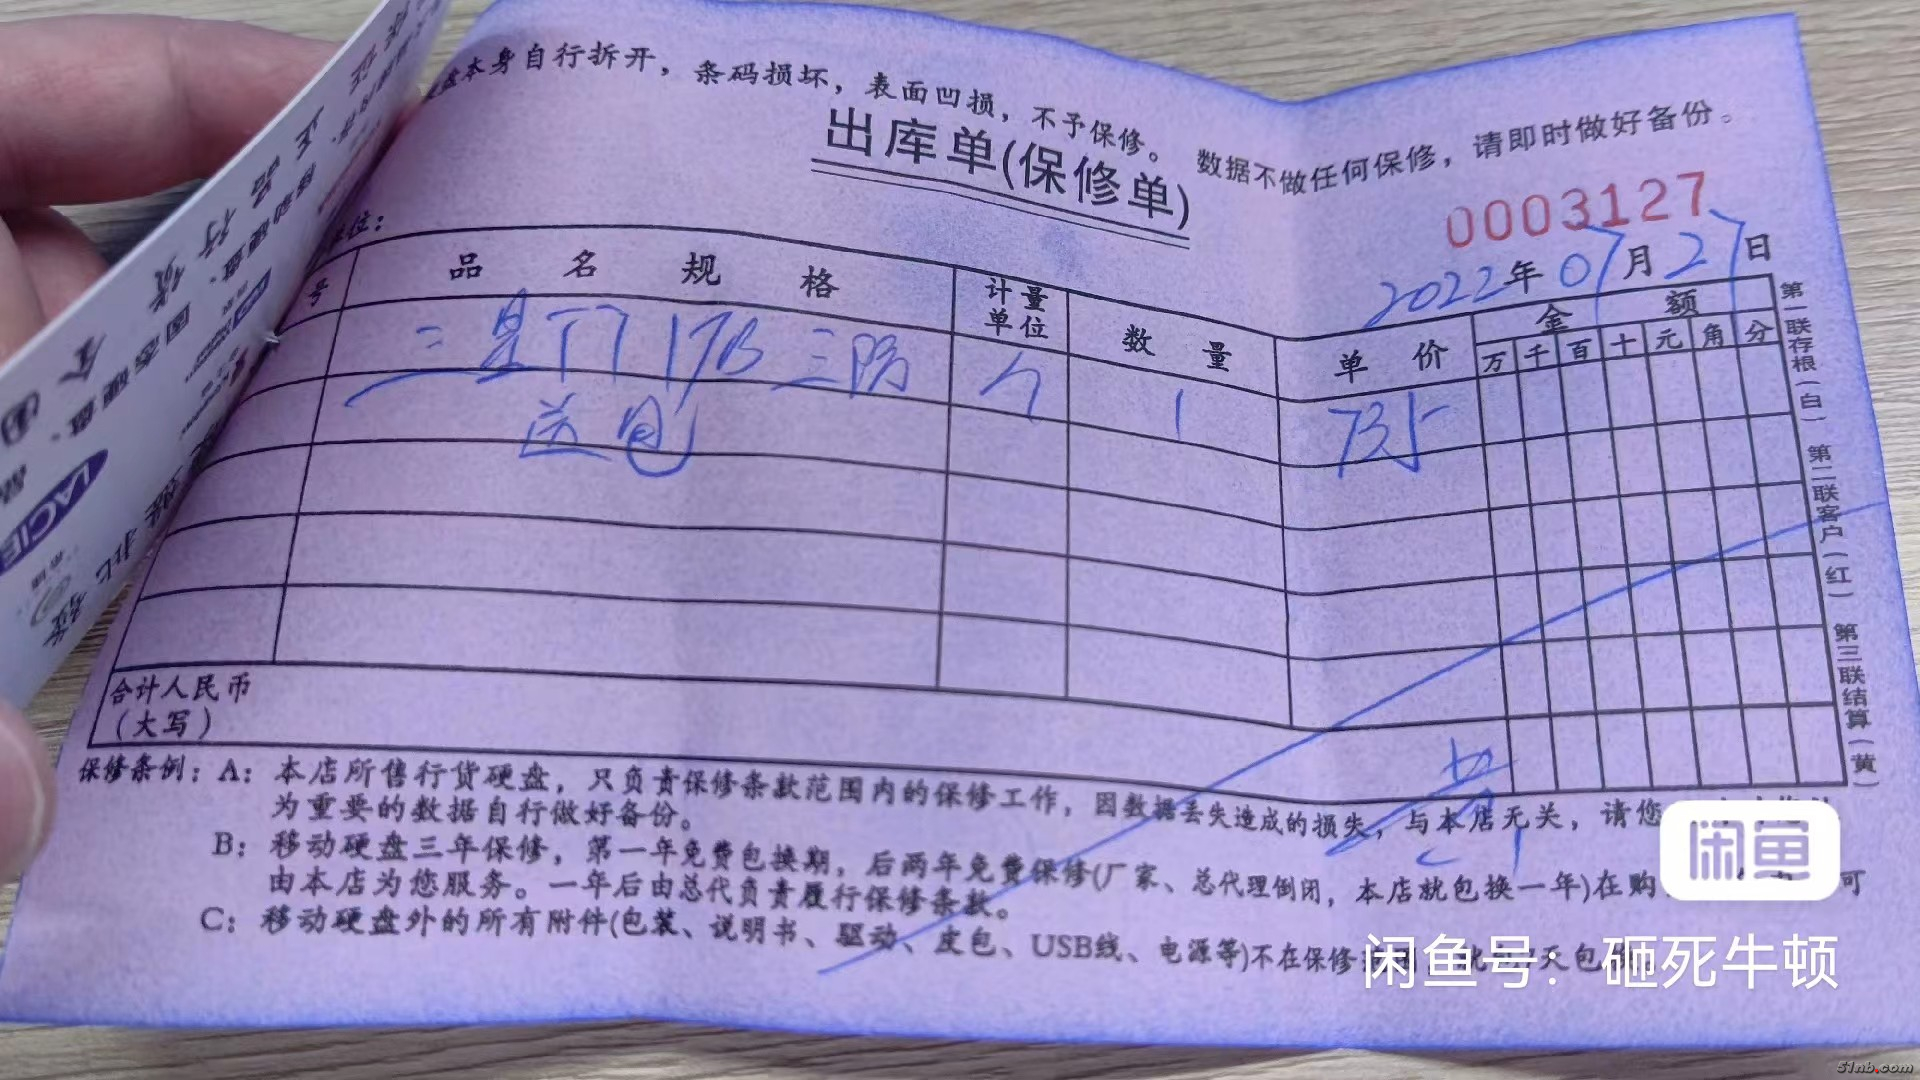 盘本身自行拆开，条码损坏，表面凹损，不予保修。数据不做任何保修，请即时做好备份。
出库单(保修单)
0003127
位：
2022年07月27日
号 品名规格 计量单位 数量 单价 金额
万 千 百 十 元 角 分
三星T7 1TB 三防 个 1 735
送包
合计人民币
（大写）
第一联存根（白） 第二联客户（红） 第三联结算（黄）
保修条例：A：本店所售行货硬盘，只负责保修条款范围内的保修工作，因数据丢失造成的损失，与本店无关，请您
为重要的数据自行做好备份。
B：移动硬盘三年保修，第一年免费包换期，后两年免费保修(厂家、总代理倒闭，本店就包换一年)在购 可
由本店为您服务。一年后由总代负责履行保修条款。
C：移动硬盘外的所有附件(包装、说明书、驱动、皮包、USB线、电源等)不在保修 天包
LACIE
闲鱼
闲鱼号：砸死牛顿
51nb.com